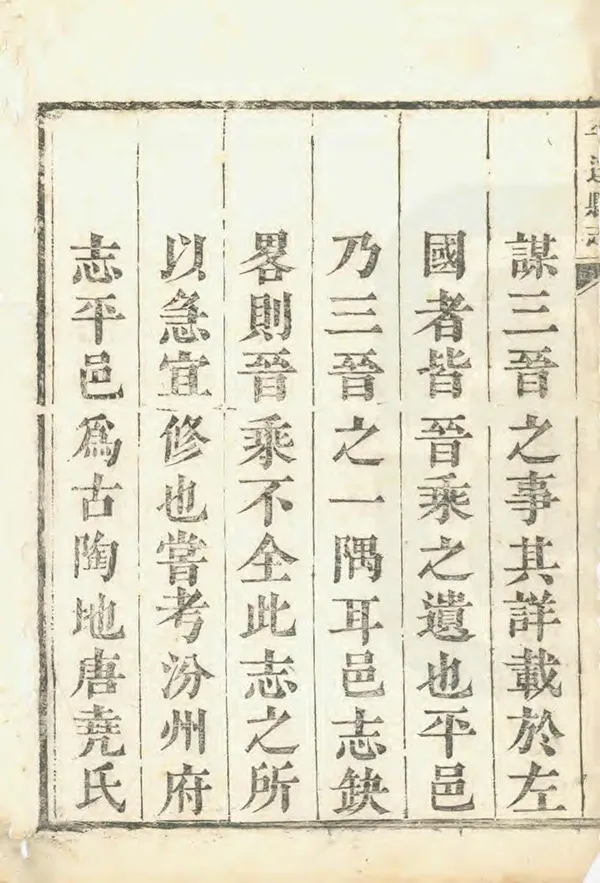 平遥縣志
謀三晉之事其詳載於左
國者皆晉乘之遺也平邑
乃三晉之一隅耳邑志缺
畧則晉乘不全此志之所
以急宜修也嘗考汾州府
志平邑爲古陶地唐堯氏